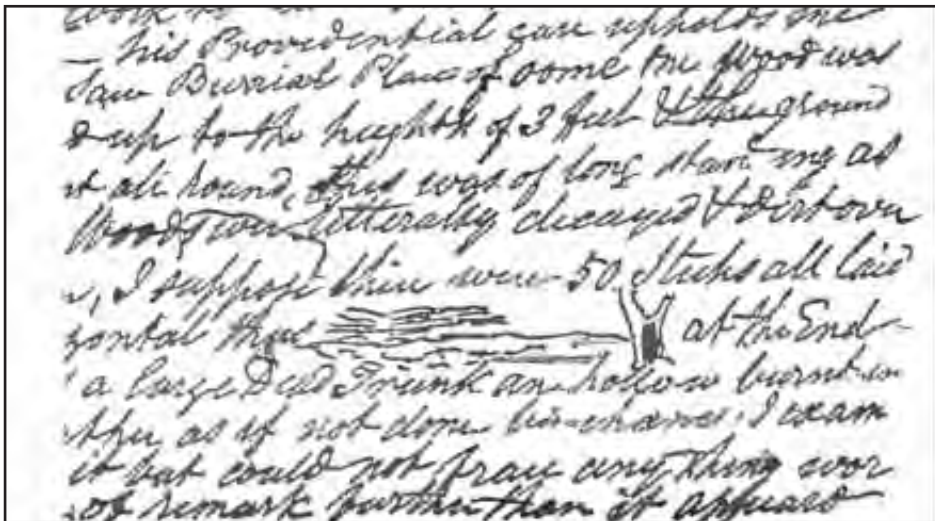 work
– his Providential care upholds me
Saw Burrial Place of some one Wood was
d up to the heights of 3 feet & the ground
t all round, this was of long standing as
Woods litterally decayed & dirt over
I suppose there were 50 Sticks all laid
zontal thus at the End
a large Dead Trunk an hollow burnt in
ther as if not done by chance. I exam
it but could not any thing wor
of remark further than it appeard